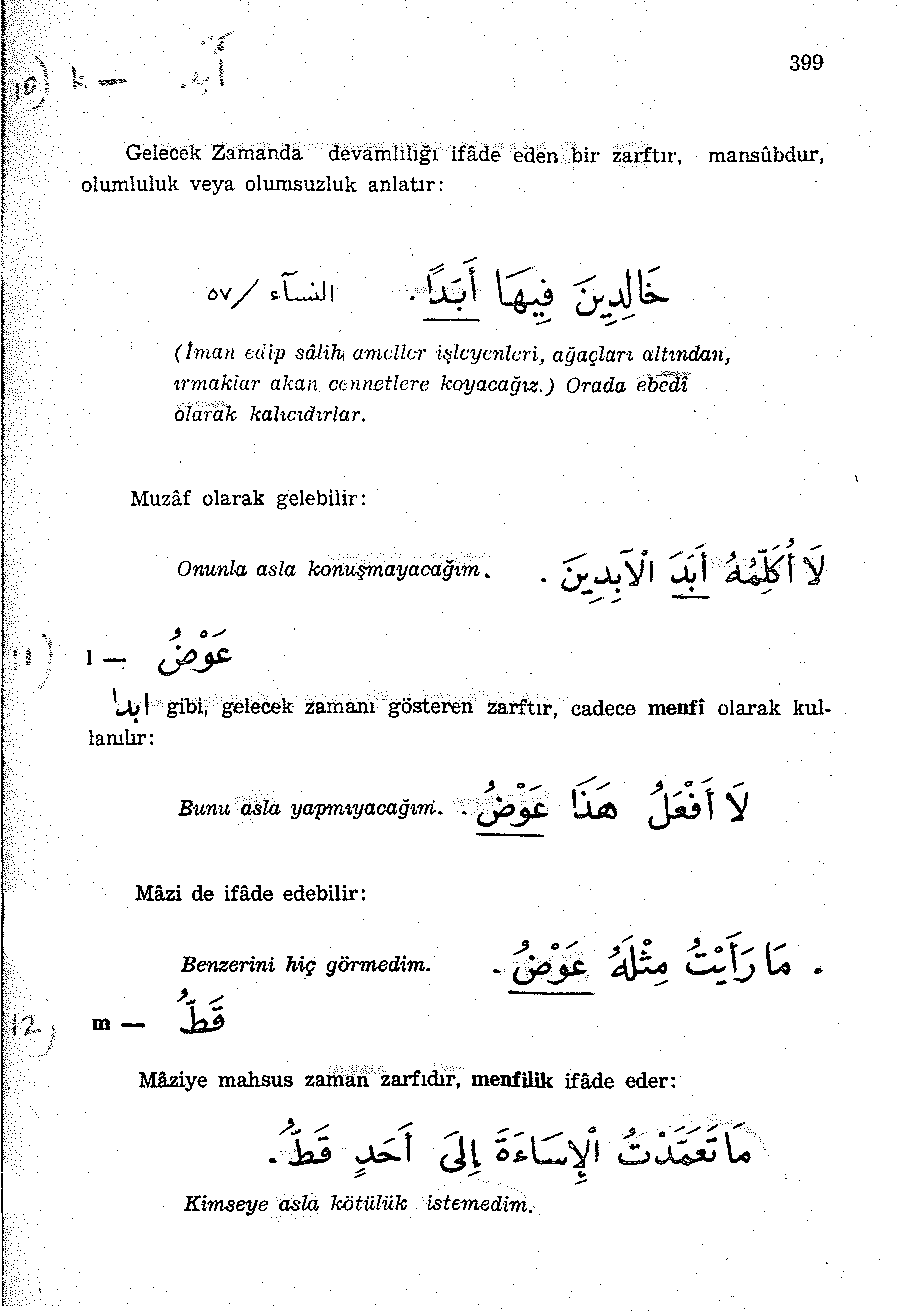 399
10) k — أَبَد
Gelecek Zamanda devamlılığı ifâde eden bir zarftır, mansûbdur,
olumluluk veya olumsuzluk anlatır:
خَالِدِينَ فِيهَا أَبَدًا . النسآء /٥٧
(İman edip sâlih ameller işleyenleri, ağaçları altından,
ırmaklar akan cennetlere koyacağız.) Orada ebedî
olarak kalıcıdırlar.
Muzâf olarak gelebilir:
Onunla asla konuşmayacağım. لَا أُكَلِّمُهُ أَبَدَ الْآبِدِينَ .
11) l — عَوْضُ
ابدا gibi, gelecek zamanı gösteren zarftır, cadece menfî olarak kul-
lanılır:
Bunu asla yapmıyacağım. لَا أَفْعَلُ هَذَا عَوْضُ .
Mâzi de ifâde edebilir:
Benzerini hiç görmedim. . مَا رَأَيْتُ مِثْلَهُ عَوْضُ .
12) m — قَطُّ
Mâziye mahsus zaman zarfıdır, menfilik ifâde eder:
مَا تَعَمَّدْتُ الْإِسَاءَةَ إِلَى أَحَدٍ قَطُّ .
Kimseye asla kötülük istemedim.